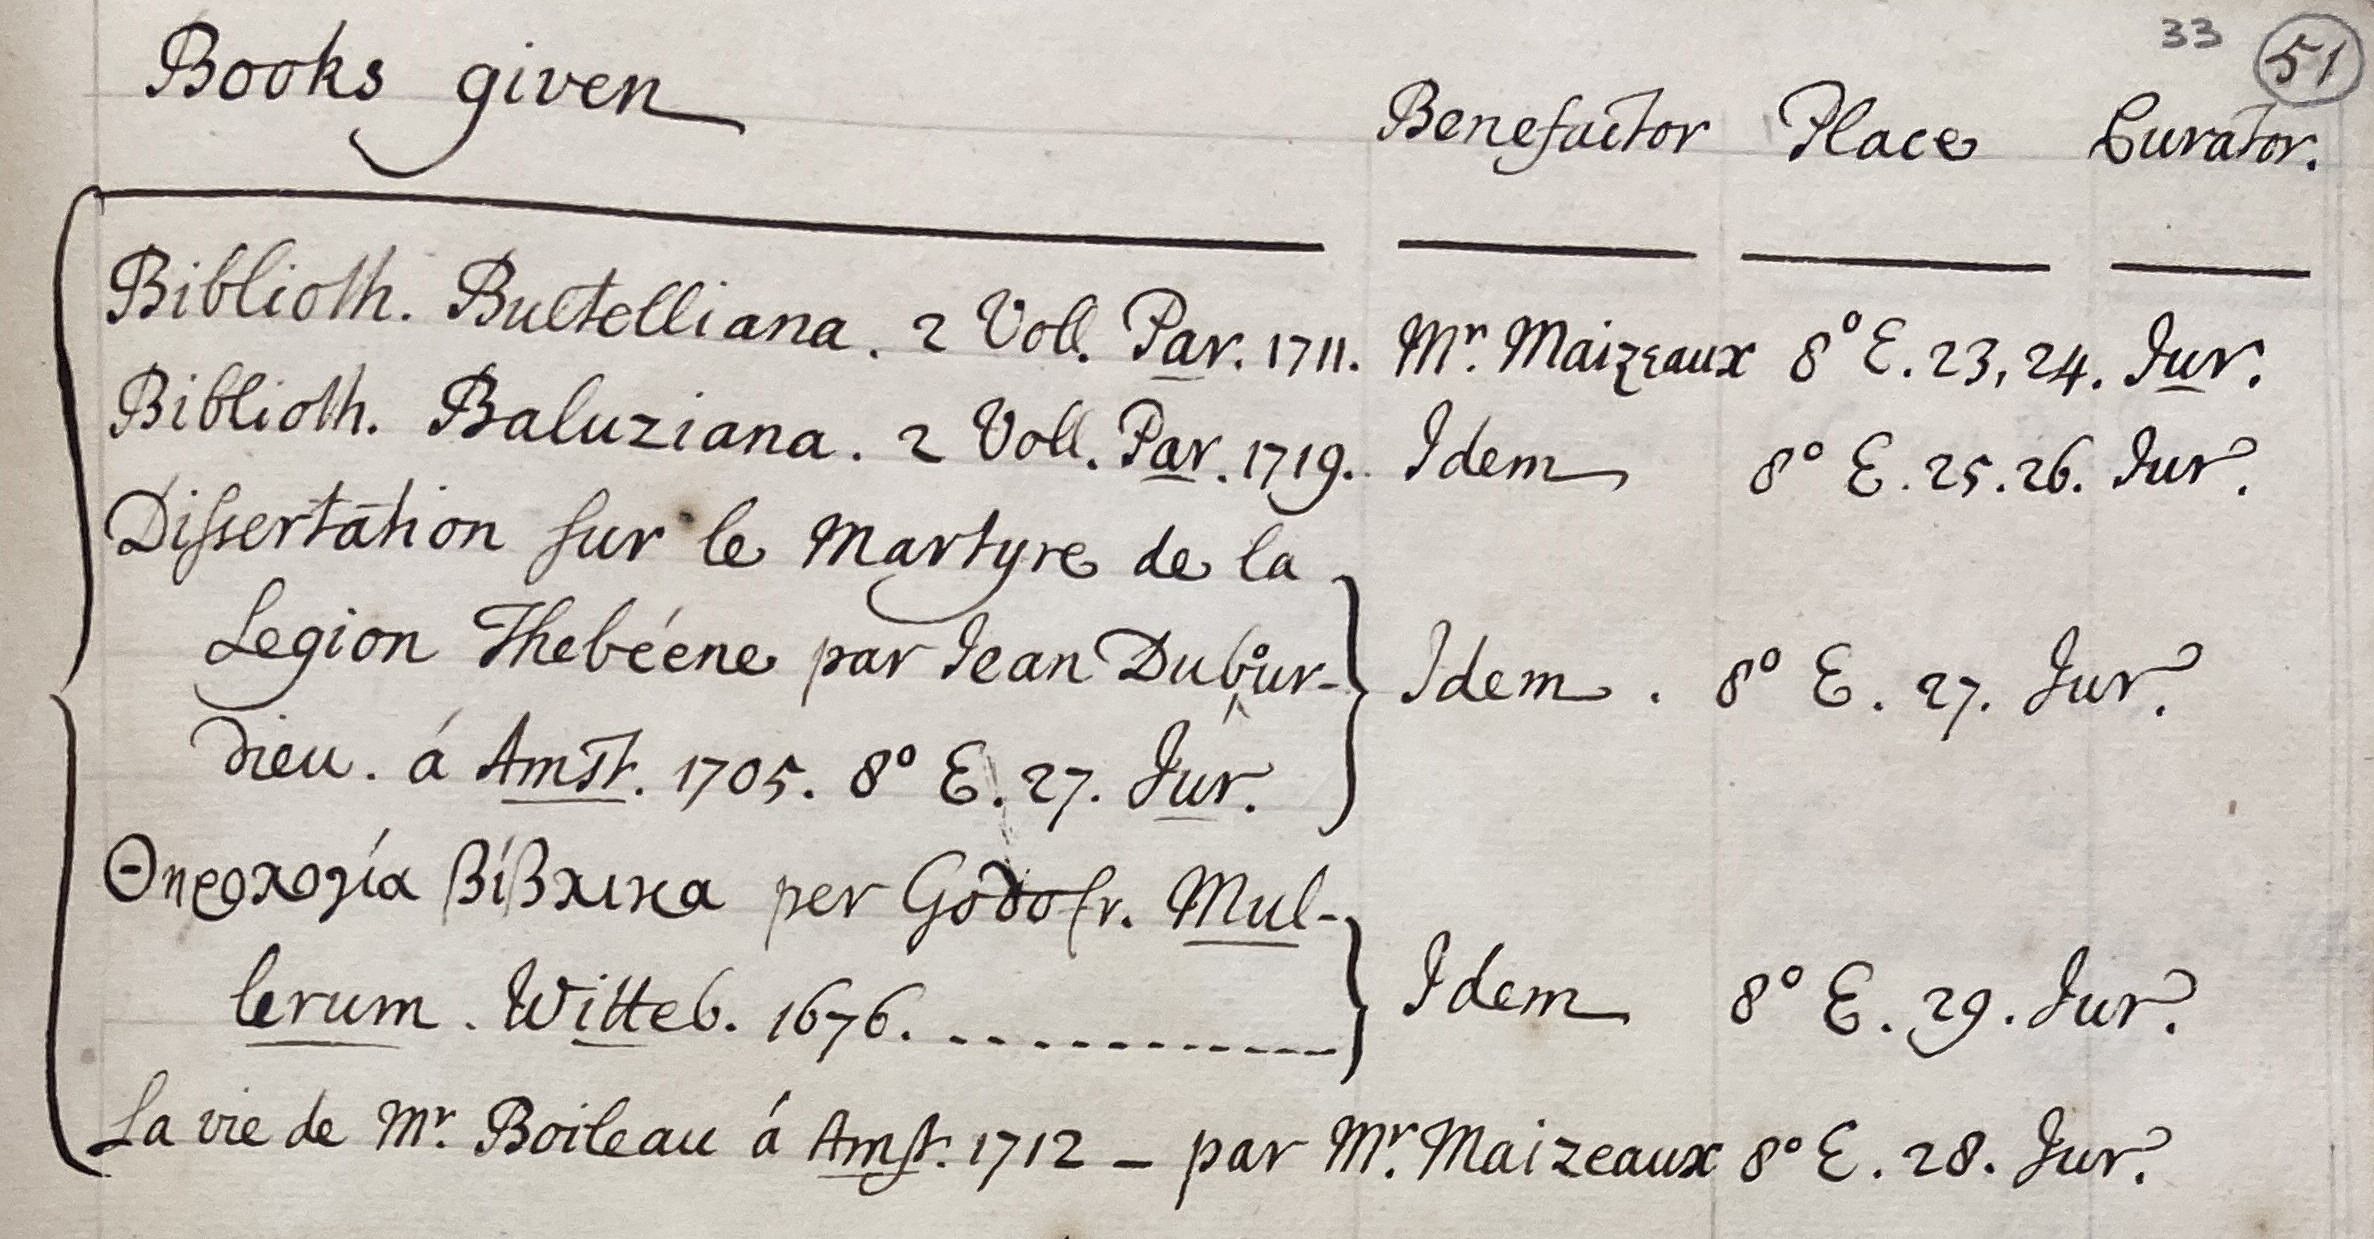 33 51
Books given Benefactor Place Curator.
Biblioth. Bultelliana. 2 Voll. Par. 1711. Mr. Maizeaux 8° E. 23, 24. Jur.
Biblioth. Baluziana. 2 Voll. Par. 1719. Idem 8° E. 25. 26. Jur.
Dissertation sur le Martyre de la
Legion Thebéene par Jean Dubour- Idem. 8° E. 27. Jur.
dieu. á Amst. 1705. 8° E. 27. Jur.
Θηρολογία βίβλικα per Godofr. Mul-
lerum. Witteb. 1676. ............ Idem 8° E. 29. Jur.
La vie de Mr. Boileau á Amst. 1712 – par Mr. Maizeaux 8° E. 28. Jur.